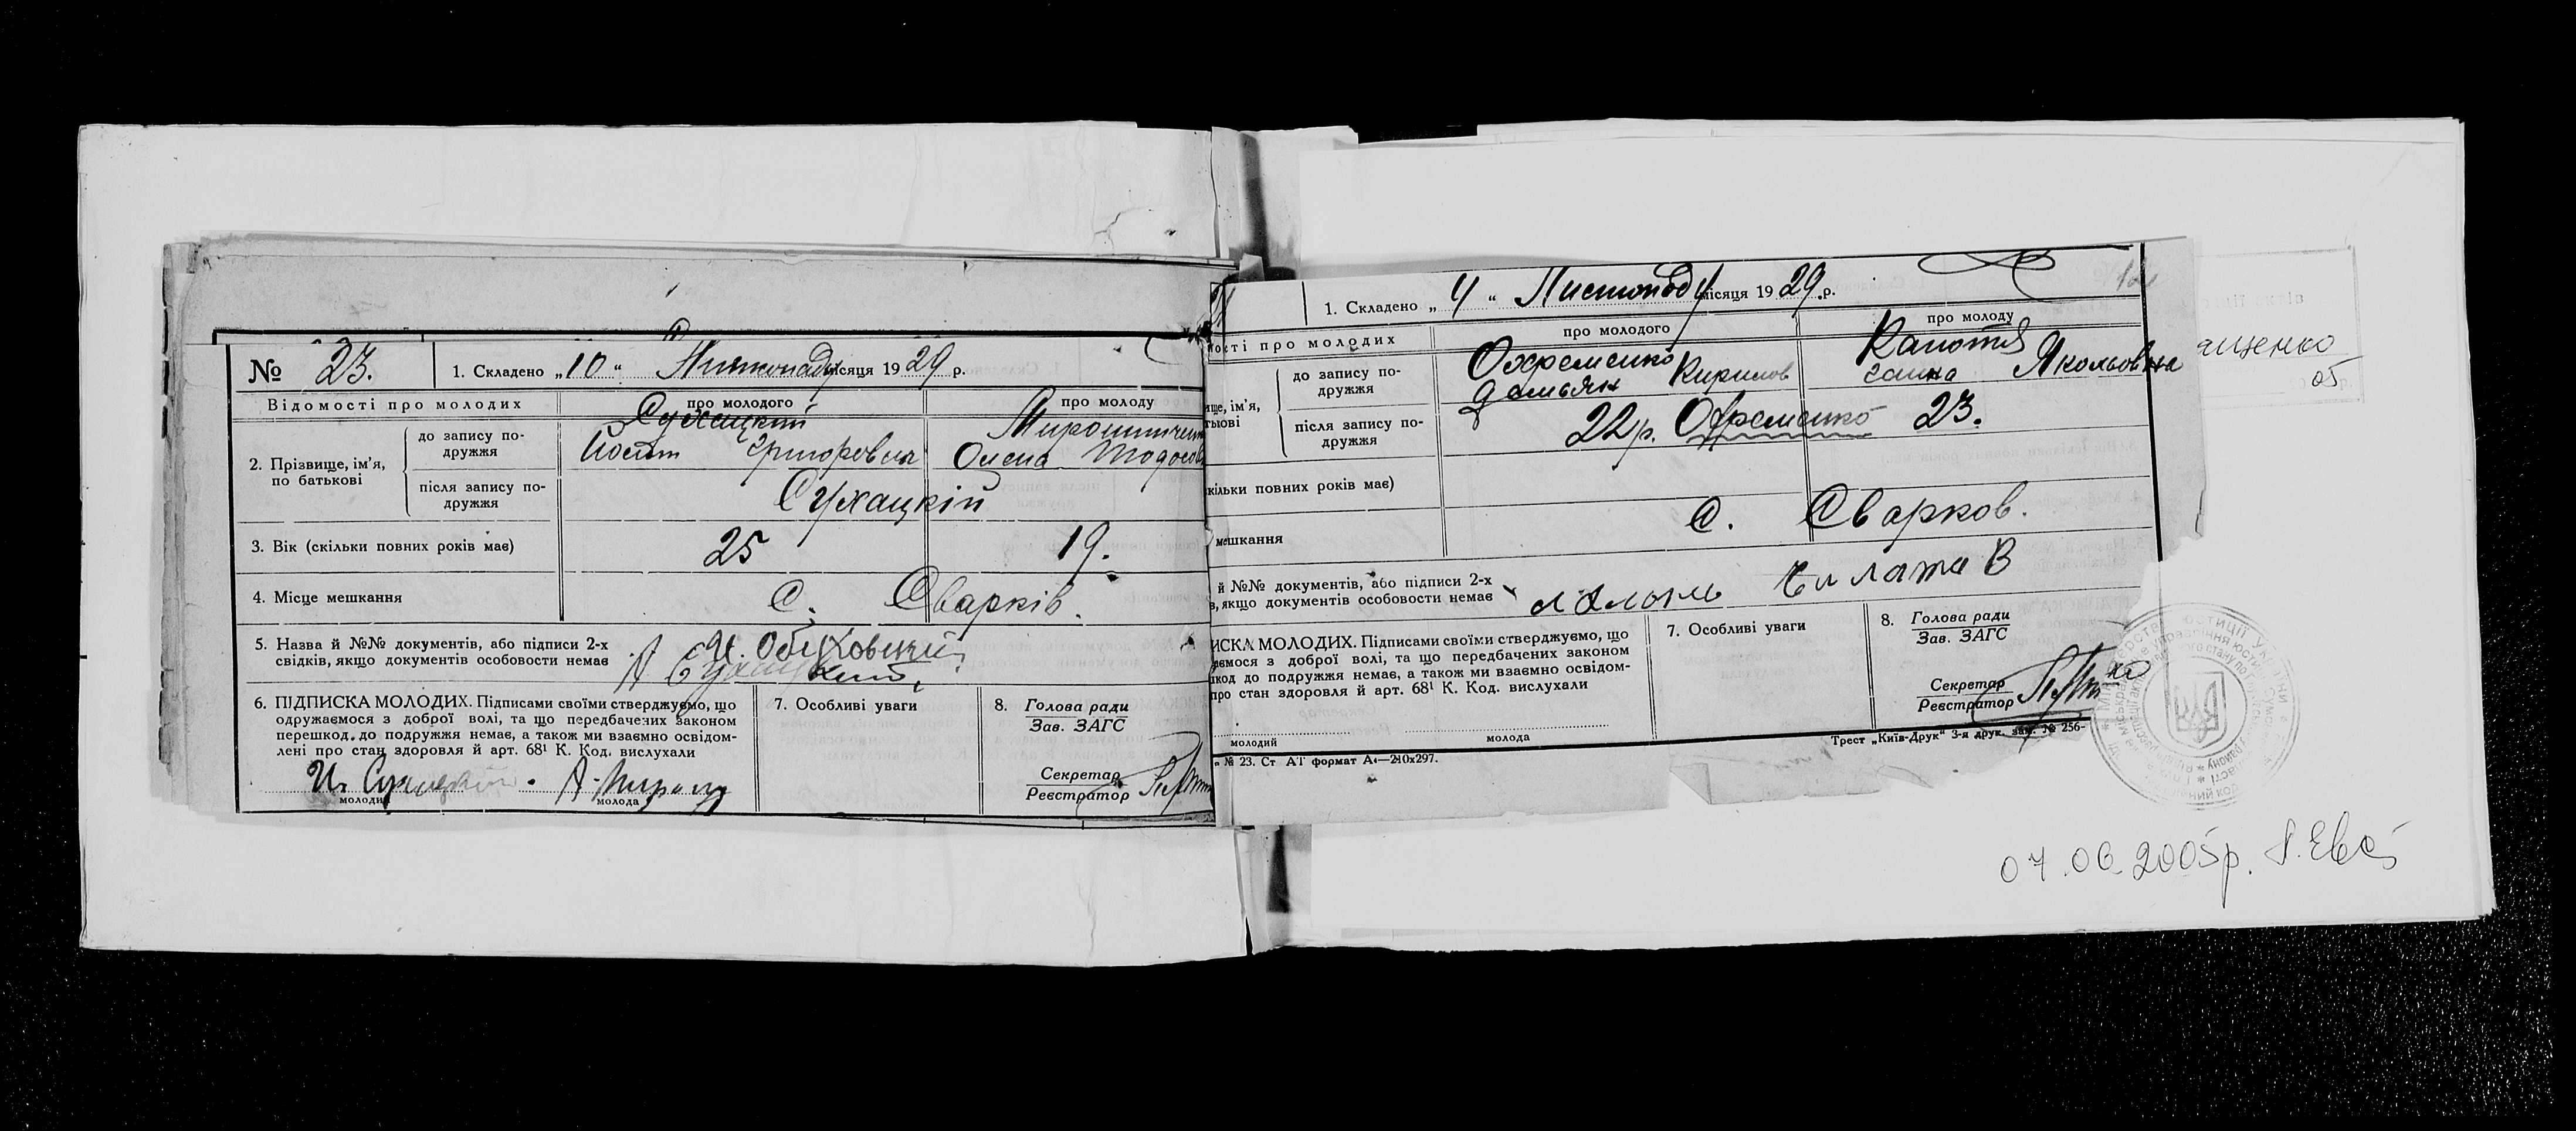 № 23. 1. Складено „10“ Листопаду місяця 1929 р.
Відомості про молодих про молодого про молоду
2. Прізвище, ім'я, по батькові
до запису подружжя
Сухацкій
Йосип Григорович
Олена Тодосов
після запису подружжя
Сухацкій
3. Вік (скільки повних років має) 25 19.
4. Місце мешкання С. Сварків.
5. Назва й №№ документів, або підписи 2-х
свідків, якщо документів особовости немає
6. ПІДПИСКА МОЛОДИХ. Підписами своїми стверджуємо, що
одружаємося з доброї волі, та що передбачених законом
перешкод до подружжя немає, а також ми взаємно освідом-
лені про стан здоровля й арт. 68¹ К. Код. вислухали
молодий молода
7. Особливі уваги
8. Голова ради
Зав. ЗАГС
Секретар
Реєстратор
1. Складено „4“ Листопаду місяця 1929 р.
ності про молодих про молодого про молоду
ище, ім'я,
тькові
до запису по-
дружжя
Охременко
Демьян Кирилов
Капотя
Ганна Якольовна
після запису по-
дружжя
22 р. Охременко 23.
кільки повних років має)
мешкання С. Сварков.
й №№ документів, або підписи 2-х
в, якщо документів особовости немає
ИСКА МОЛОДИХ. Підписами своїми стверджуємо, що
ємося з доброї волі, та що передбачених законом
код до подружжя немає, а також ми взаємно освідом-
про стан здоровля й арт. 68¹ К. Код. вислухали
молодий молода
7. Особливі уваги
8. Голова ради
Зав. ЗАГС
Секретар
Реєстратор
№ 23. Ст АТ формат А4—210x297.
Трест „Київ-Друк“ 3-я друк. зам. № 256-
ащенко
05
07.06.2005р.